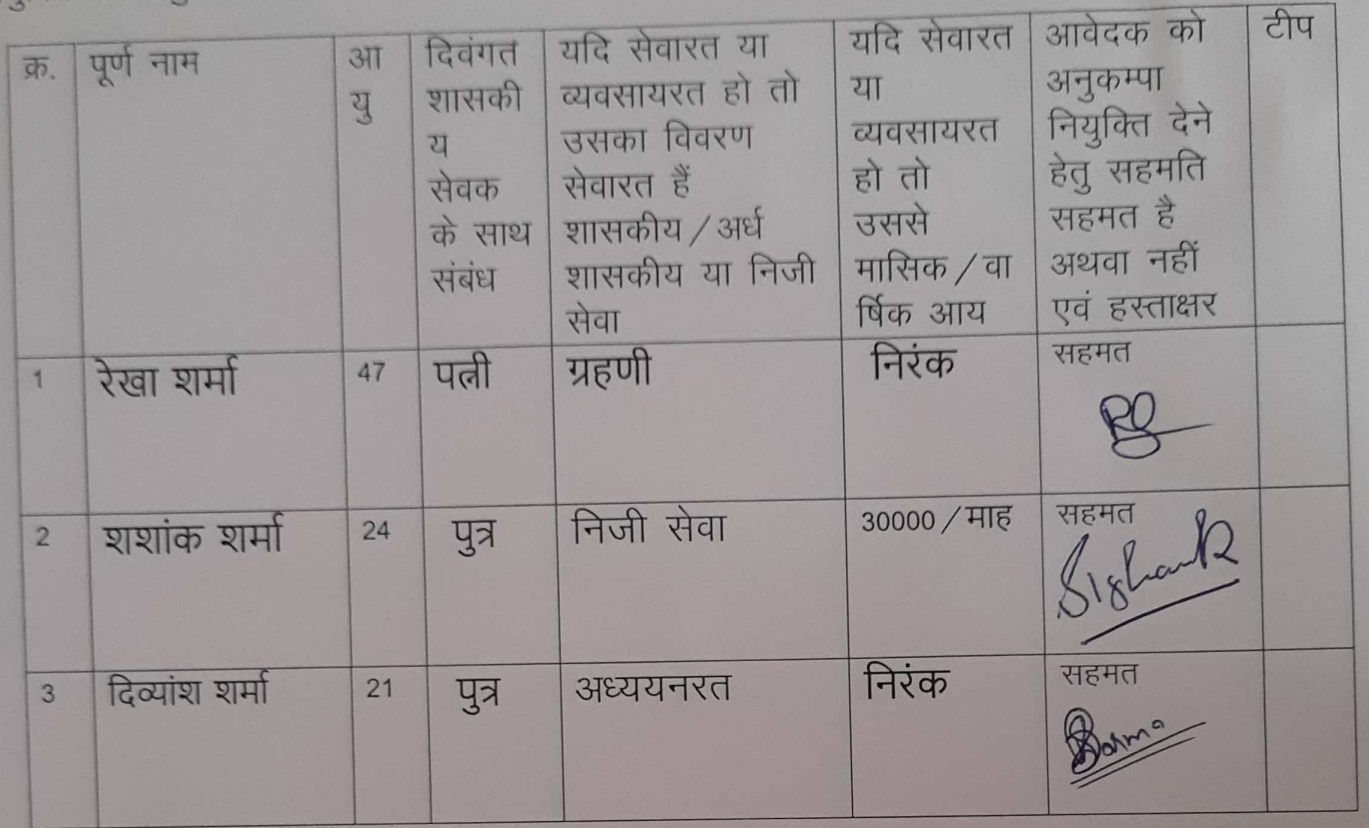 क्र. पूर्ण नाम आ यु दिवंगत शासकी य सेवक के साथ संबंध यदि सेवारत या व्यवसायरत हो तो उसका विवरण सेवारत हैं शासकीय / अर्ध शासकीय या निजी सेवा यदि सेवारत या व्यवसायरत हो तो उससे मासिक / वा र्षिक आय आवेदक को अनुकम्पा नियुक्ति देने हेतु सहमति सहमत है अथवा नहीं एवं हस्ताक्षर टीप
1 रेखा शर्मा 47 पत्नी ग्रहणी निरंक सहमत
2 शशांक शर्मा 24 पुत्र निजी सेवा 30000 / माह सहमत
3 दिव्यांश शर्मा 21 पुत्र अध्ययनरत निरंक सहमत